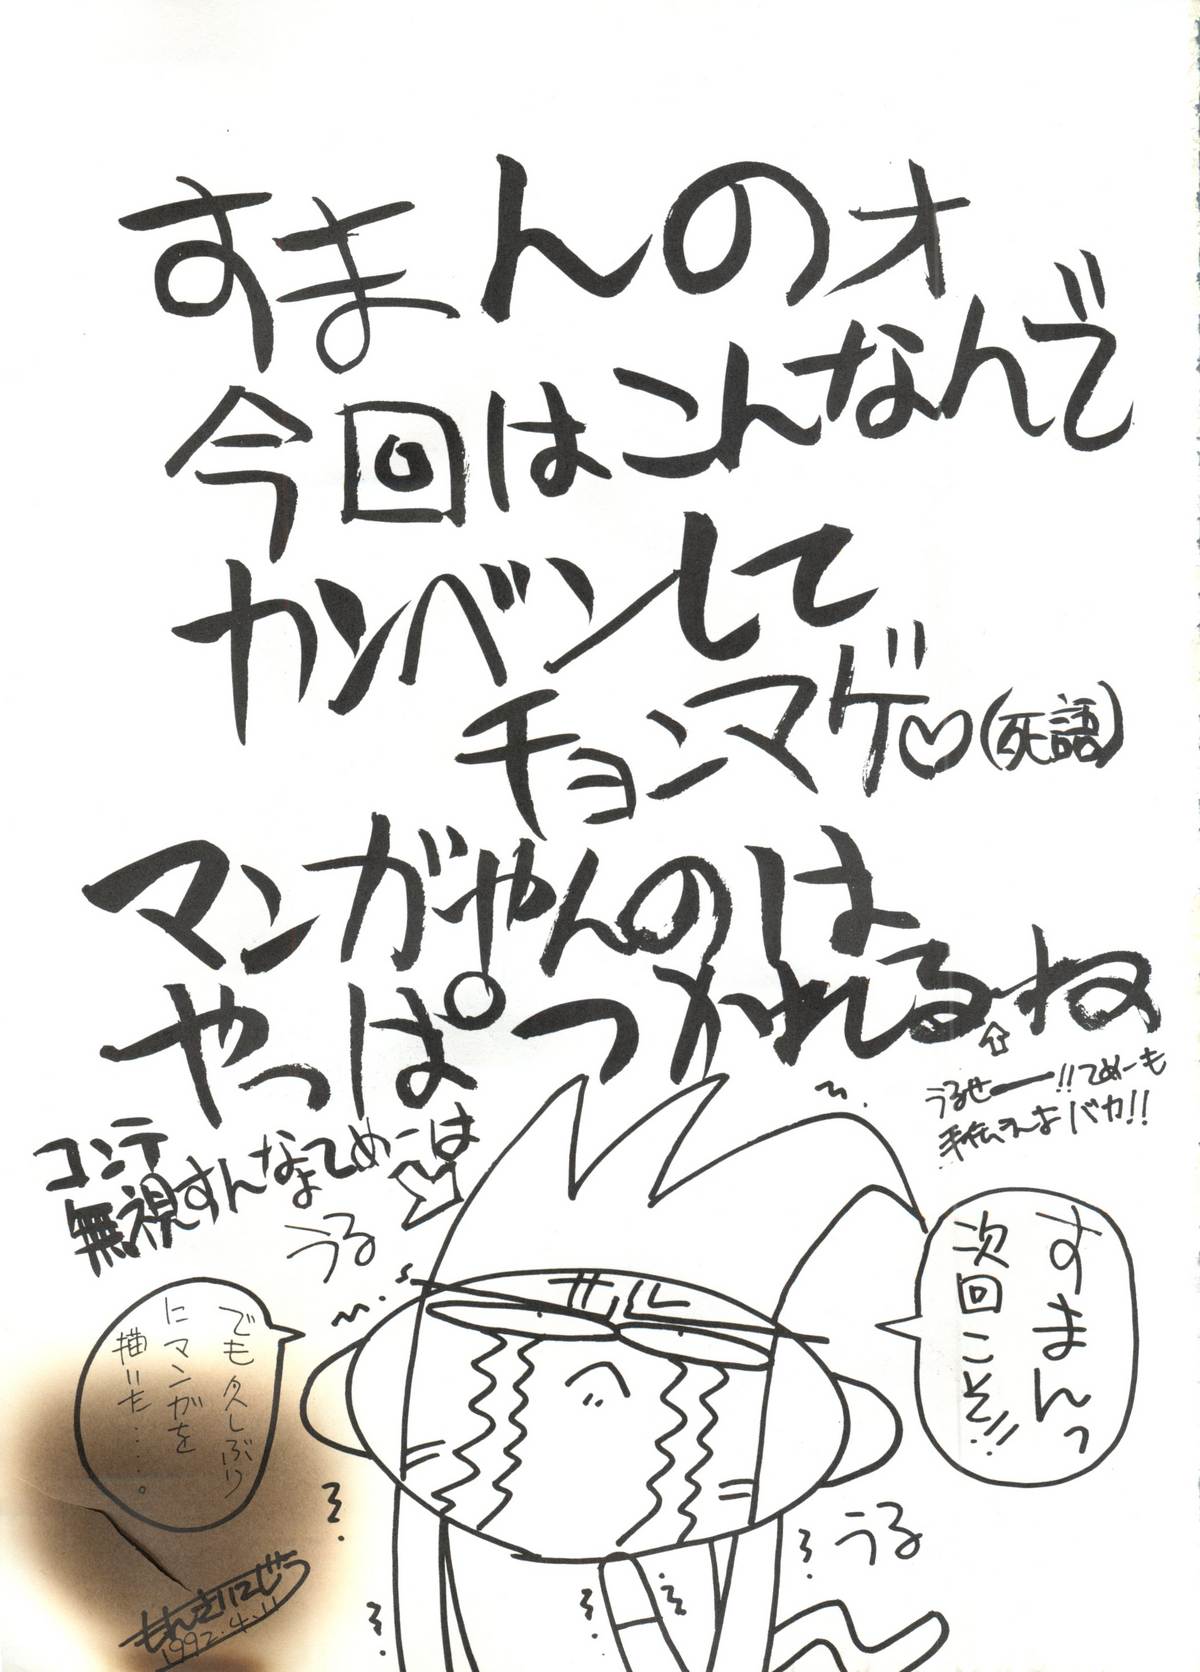 すまんのオ
今回はこんなんで
カンベンして
チョンマゲ♡(死語)
マンガやんのは
やっぱつかれるね
⇧
うるせー!!てめーも
手伝えよバカ!!
コンテ
無視すんなてめーは
うる
すまんっ
次回こそ!!
サル
でも久しぶり
にマンガを
描いた‥‥。
うる
1992.4.11